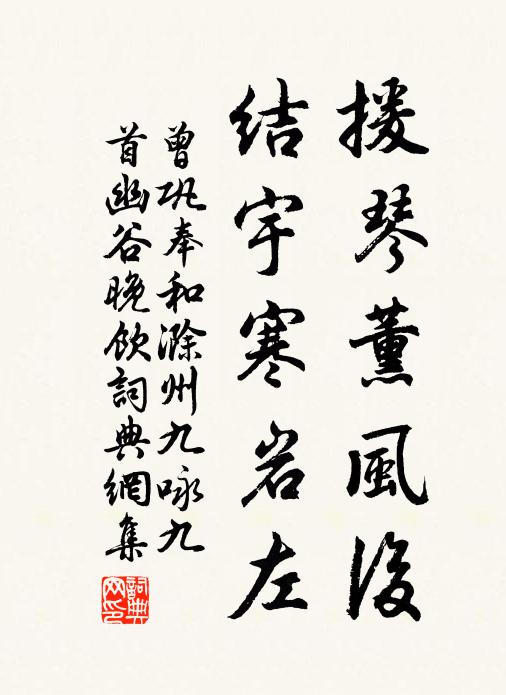 援琴薰風後
結宇寒岩左
曾巩奉和滁州九咏九
首幽谷晚飲詞典網集
詞典網印